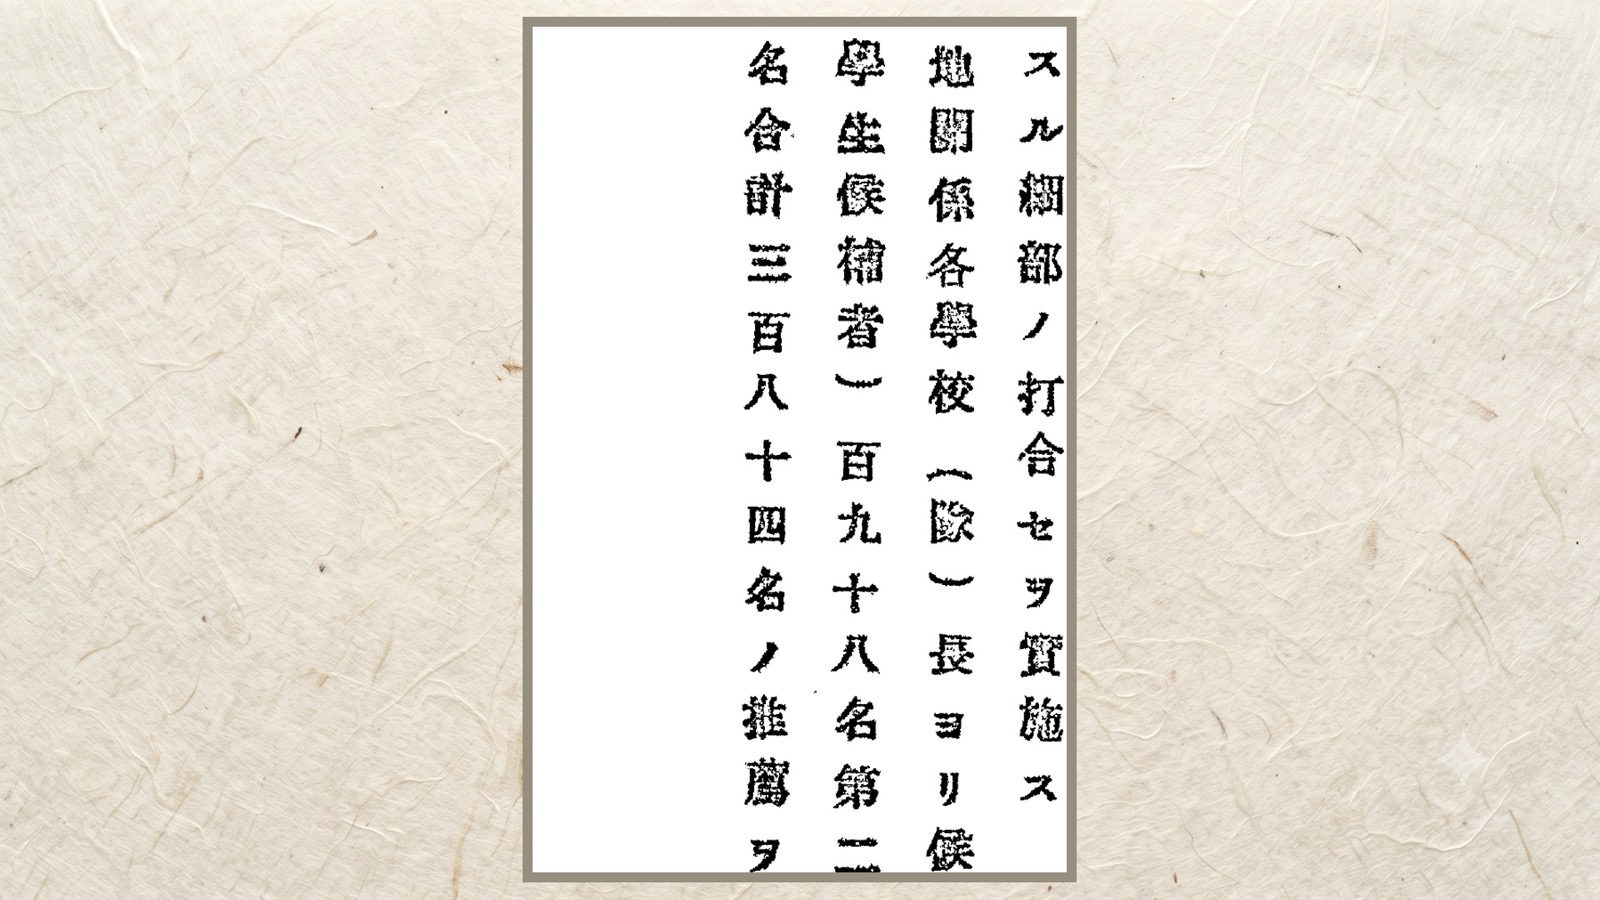 スル細部ノ打合セヲ實施ス
地關係各學校(隊)長ヨリ候
學生候補者)百九十八名第二
名合計三百八十四名ノ推薦ヲ